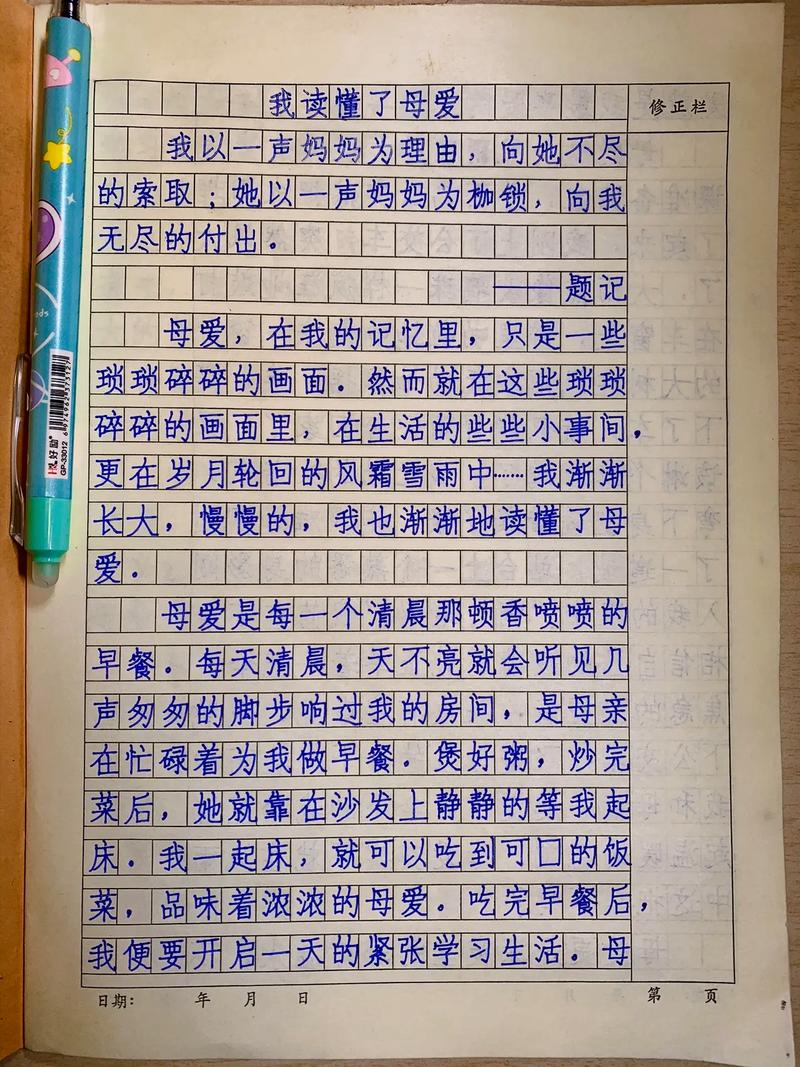 我读懂了母爱
修正栏
我以一声妈妈为理由，向她不尽
的索取；她以一声妈妈为枷锁，向我
无尽的付出。
——题记
母爱，在我的记忆里，只是一些
琐琐碎碎的画面。然而就在这些琐琐
碎碎的画面里，在生活的些些小事间，
更在岁月轮回的风霜雪雨中……我渐渐
长大，慢慢的，我也渐渐地读懂了母
爱。
母爱是每一个清晨那顿香喷喷的
早餐。每天清晨，天不亮就会听见几
声匆匆的脚步响过我的房间，是母亲
在忙碌着为我做早餐。煲好粥，炒完
菜后，她就靠在沙发上静静的等我起
床。我一起床，就可以吃到可口的饭
菜，品味着浓浓的母爱。吃完早餐后，
我便要开启一天的紧张学习生活。母
日期： 年 月 日
第 页
好励
GP-33012
6974962373127